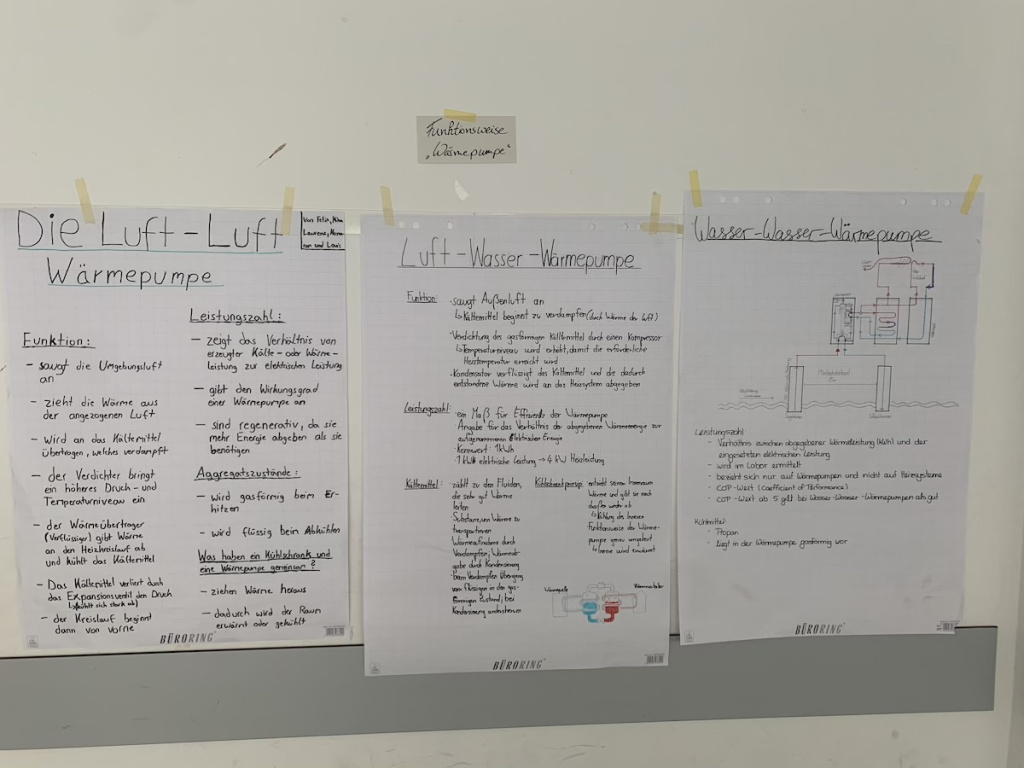 Funktionsweise
„Wärmepumpe"
Die Luft-Luft
Wärmepumpe
Von Felix,
Laurenz,
und Louis
Funktion:
- saugt die Umgebungsluft
an
- zieht die Wärme aus
der angezogenen Luft
- Wird an das Kältemittel
übertragen, welches verdampft
- der Verdichter bringt
ein höheres Druck- und
Temperaturniveau ein
- der Wärmeüberträger
(Verflüssiger) gibt Wärme
an den Heizkreislauf ab
und kühlt das Kältemittel
- Das Kältemittel verliert durch
das Expansionsventil den Druck
(kühlt sich stark ab)
- der Kreislauf beginnt
dann von Vorne
Leistungszahl:
- zeigt das Verhältnis von
erzeugter Kälte- oder Wärme-
leistung zur elektrischen Leistung
- gibt den Wirkungsgrad
einer Wärmepumpe an
- sind regenerativ, da sie
mehr Energie abgeben als sie
benötigen
Aggregatszustände:
- wird gasförmig beim Er-
hitzen
- wird flüssig beim Abkühlen
Was haben ein Kühlschrank und
eine Wärmepumpe gemeinsam?
- ziehen Wärme heraus
- dadurch wird der Raum
erwärmt oder gekühlt
BÜRORING
Luft-Wasser-Wärmepumpe
Funktion:
· saugt Außenluft an
↳ Kältemittel beginnt zu verdampfen (durch Wärme der Luft)
· Verdichtung des gasförmigen Kältemittel durch einen Kompressor
↳ Temperaturniveau wird erhöht, damit die erforderliche
Heiztemperatur erreicht wird
· Kondensator verflüssigt das Kältemittel und die dadurch
entstandene Wärme wird an das Heizsystem abgegeben
Leistungszahl:
· ein Maß für Effizienz der Wärmepumpe
Angabe für das Verhältnis der abgegebenen Wärmeenergie zur
aufgenommenen Elektrischer Energie
· Kennwert: 1kWh
· 1 kWh elektrische Leistung → 4 kW Heizleistung
Kältemittel:
· zählt zu den Fluiden,
die sehr gut Wärme
leiten
· Substanz, um Wärme zu
transportieren
· Wärmeaufnahme durch
Verdampfen, Wärmeab-
gabe durch Kondensierung
· Beim Verdampfen Übergang
von Flüssigen in den gas-
förmigen Zustand; bei
Kondensierung andersherum
Kühlschrankprinzip:
entzieht seinem Innenraum
Wärme und gibt sie nach
draußen wieder ab
↳ Kühlung des Inneren
· Funktionsweise der Wärme-
pumpe genau umgekehrt
↳ Innere wird erwärmt
Wärmequelle
BÜRORING
Wasser-Wasser-Wärmepumpe
Leistungszahl:
- Verhältnis zwischen abgegebener Wärmeleistung (kWh) und der
eingesetzten elektrischen Leistung
- wird im Labor ermittelt
- bezieht sich nur auf Wärmepumpen und nicht auf Heizsysteme
- COP-Wert (Coefficient of Performance)
- COP-Wert ab 5 gilt bei Wasser-Wasser-Wärmepumpen als gut
Kühlmittel:
- Propan
- Liegt in der Wärmepumpe gasförmig vor
BÜRORING